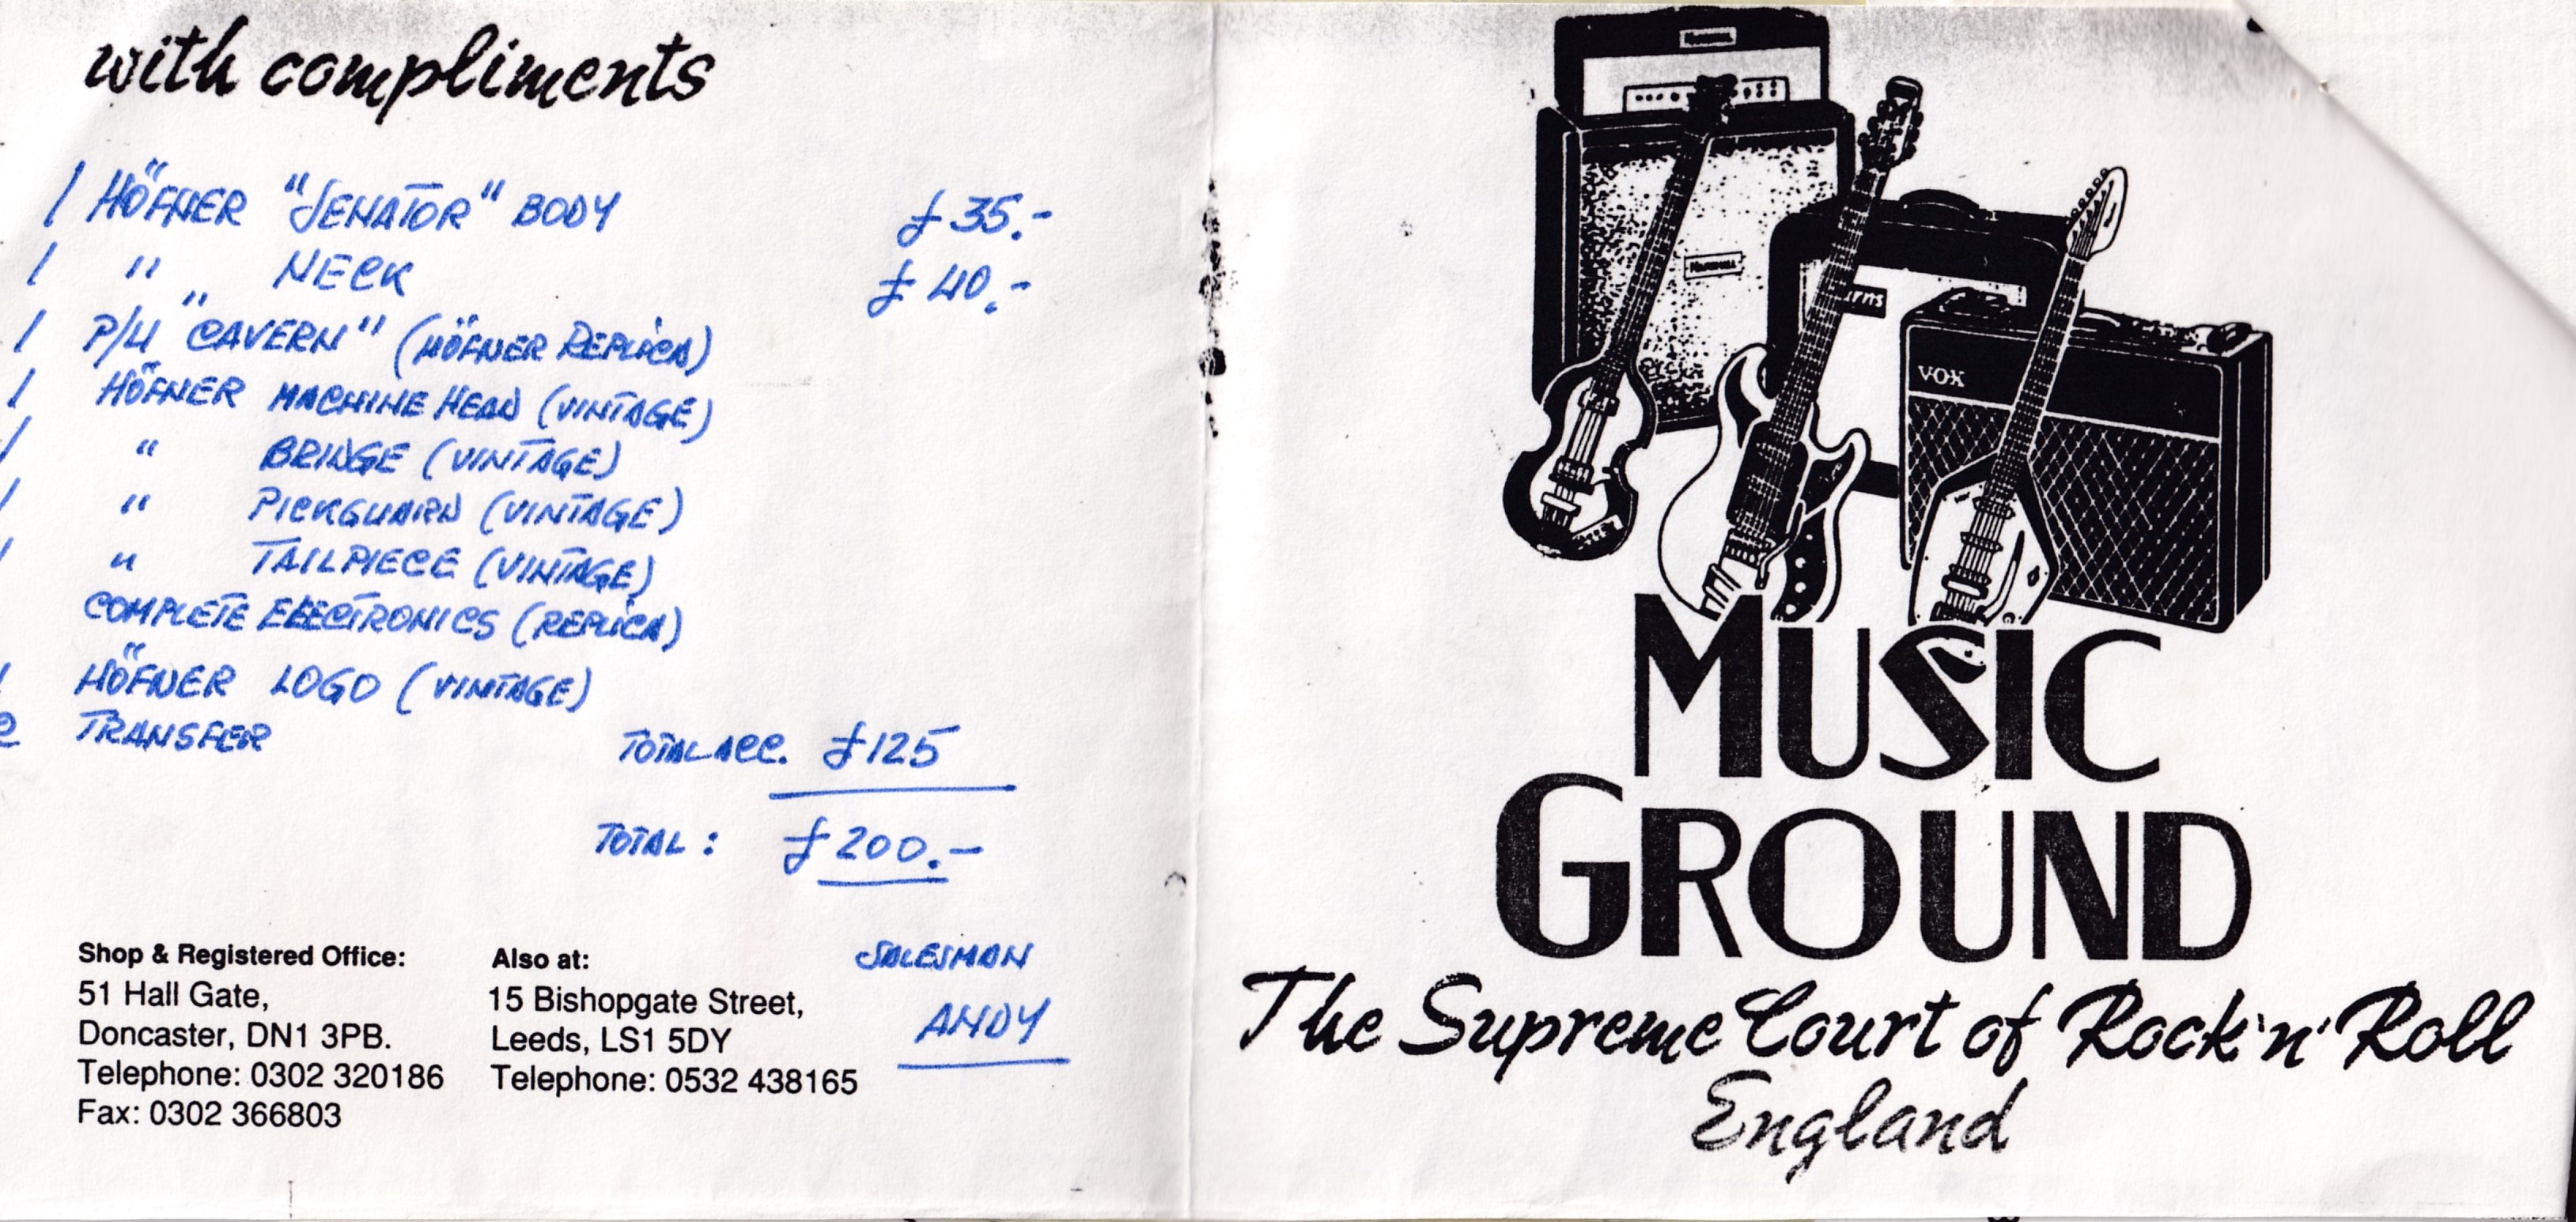 with compliments
1 HÖFNER "SENATOR" BODY £ 35.-
1 " NECK £ 40.-
1 P/U "CAVERN" (HÖFNER REPLICA)
1 HÖFNER MACHINE HEAD (VINTAGE)
/ " BRIDGE (VINTAGE)
/ " PICKGUARD (VINTAGE)
/ " TAILPIECE (VINTAGE)
COMPLETE ELECTRONICS (REPLICA)
HÖFNER LOGO (VINTAGE)
TRANSFER
TOTAL ACC. £125
TOTAL: £ 200.-
SALESMAN
ANDY
Shop & Registered Office:
51 Hall Gate,
Doncaster, DN1 3PB.
Telephone: 0302 320186
Fax: 0302 366803
Also at:
15 Bishopgate Street,
Leeds, LS1 5DY
Telephone: 0532 438165
VOX
MUSIC
GROUND
The Supreme Court of Rock 'n' Roll
England